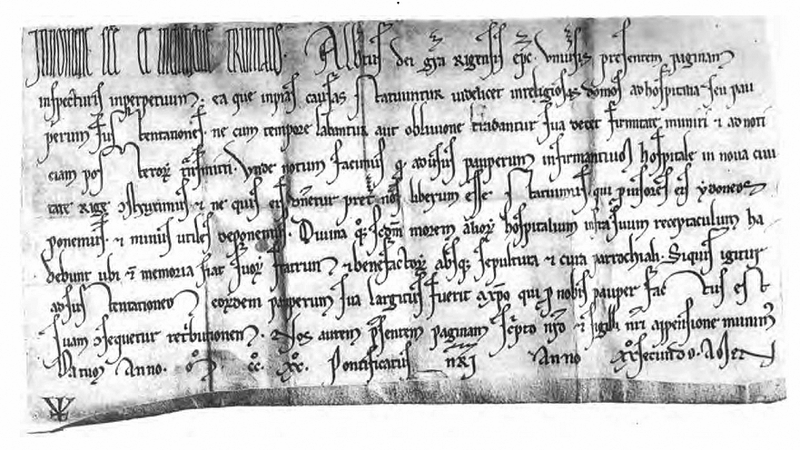 IN NOMINE SCE ET INDIVIDUE TRINITATIS. Albertus dei gra Rigensis epc. Vniusis presentem paginam
inspecturis inperpetuum. ea que inpias causas statuuntur uidelicet in religiosas domos ad hospitalia seu pau
perum sustentationes. ne cum tempore labantur aut obliuione tradantur sua decet firmitate muniri & ad noti
ciam posteror transmitti. Vnde notum facimus q ad usus pauperum infirmantium hospitale in noua ciui
tate Rige & ne quis liberum esse statuimus. qui puisores ei ydoneos
ponemus. & minus utiles deponemus. Diuina q scdm morem alior hospitalium infra suum receptaculum ha
bebunt ubi & memoria fiat suor fratrum & benefactor absq sepultura & cura parrochiali. Siquis igitur
ad sustentationem eordem pauperum sua largitus fuerit a xpo qui p nobis pauper factus est
suam retributionem. Nos autem psentem paginam scripto nro & sigilli nri appensione
Datum Anno. M. CC. XX. Pontificatus nri Anno XX secundo.